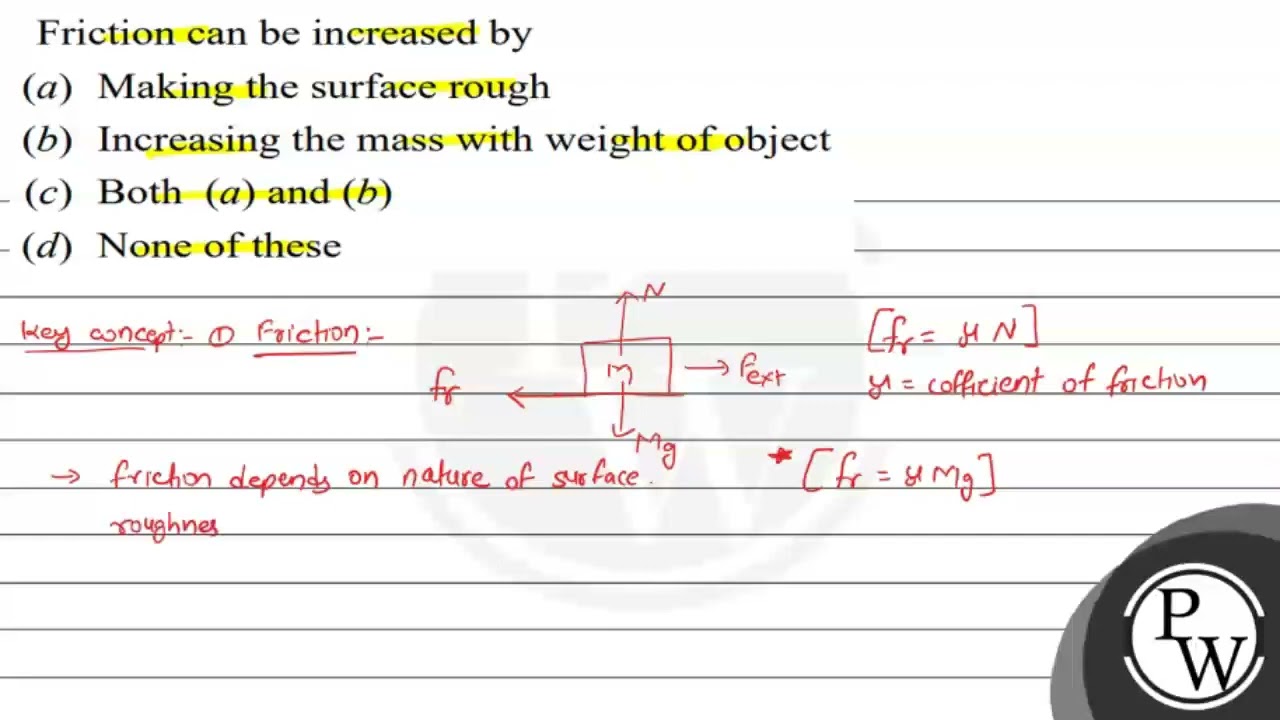 Friction can be increased by
(a) Making the surface rough
(b) Increasing the mass with weight of object
(c) Both (a) and (b)
(d) None of these
Key concept:- ① Friction:-
N
m
fr
Fext
Mg
[fr = μ N]
μ = cofficient of friction
→ friction depends on nature of surface.
* [fr = μ Mg]
roughnes
P
W